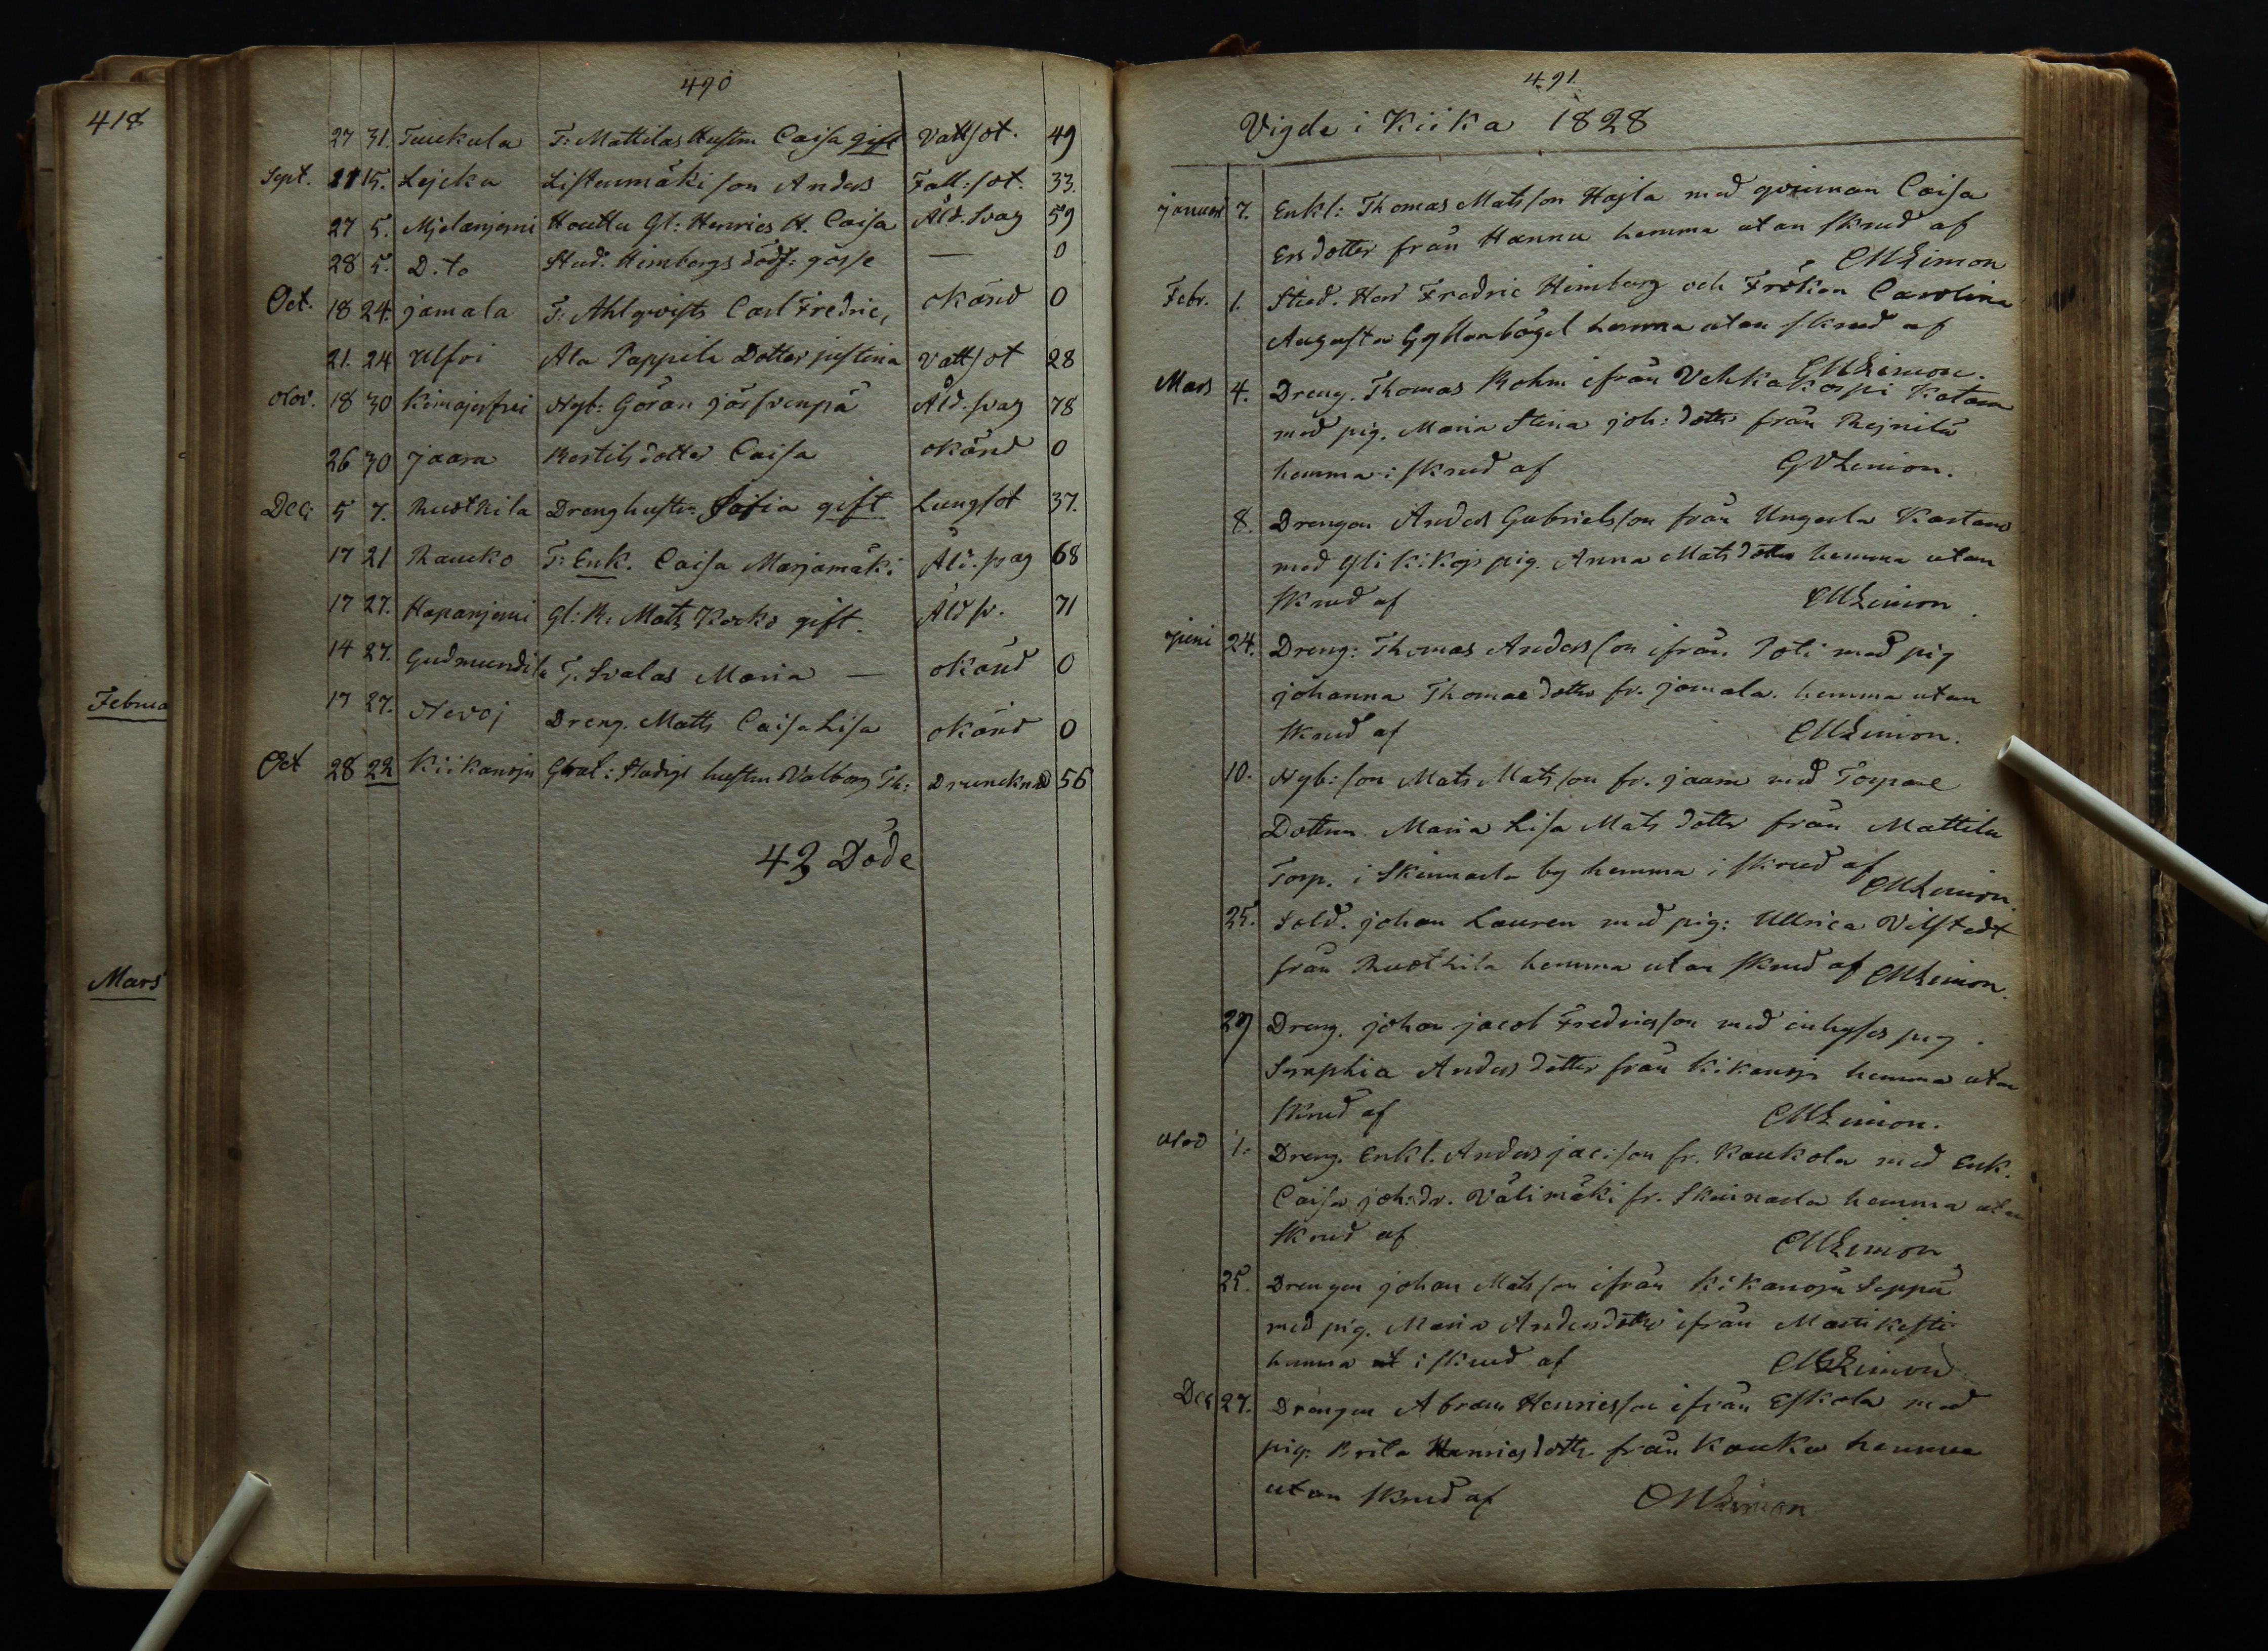 418
Februa
Mars
490
27 31. Tuukula T: Mattilas Hustru Caisa gift Vattsot. 49
Sept. 11 15. Lejcku Listenmäki son Anders Fall:sot. 33.
27 5. Mjelanjemi Houttu Gl: Henrics H. Caisa Åld. Svag 59
28 5. D.to Stud. Heimbergs dödf: gosse — 0
Oct. 18 24. jamala T: Ahlqvists Carl Fredric, okänd 0
21. 24 Ulfvi Ala Pappila Dotter justina Vattsot 28
Nov. 18 30 Nyb: Göran Åld. svag 78
26 30 jaara Bertils dotter Caisa okänd 0
Dec: 5 7. Ruotkila Dreng hustru Sofia gift Lungsot 37.
17 21 Raucko T: Enk. Caisa Marjamäki Åld. svag 68
17 27. Hapanjemi Gl: R: Matts Kocko gift. Åld sv. 71
14 27. Gudmundila T. Svalas Maria — okänd 0
17 27. Nevoj Dreng. Matts Caisa Lisa okänd 0
Oct 28 22 Kiikanoju Gl: hustru Valborg Th: Drunknad 56
43 Döde
491.
Vigde i Kiika 1828
januari 7. Enkl: Thomas Mats son Hajla med qvinnan Caisa
Ers dotter från Hannu hemma utan skrud af
CMLimon
Febr. 1. Stud. Herr Fredric Heimberg och Fröken Carolina
Augusta Gyllenbögel hemma utan skrud af
CMLimon.
Mars 4. Dreng. Thomas Bohm ifrån Vehka koski
med pig. Maria Stina joh: dotter från Rejnilä
hemma i skrud af CMLimon.
8. Drengen Anders Gabriels son från
med pig. Anna Mats dotter hemma utan
skrud af CMLimon.
juni 24. Dreng: Thomas Anders son ifrån Poti med pig
johanna Thomae dotter fr. jamala. hemma utan
skrud af CMLimon.
10. Nyb: son Mats Mats son fr. jaara med Torpare
Dottren Maria Lisa Mats dotter från Mattila
Torp. i Skinnarla by hemma i skrud af CMLimon.
25. Sold. johan Lauren med pig: Ullrica Vilstedt
från Ruotkila hemma utan skrud af CMLimon.
29 Dreng. johan jacob Fredricsson med inhyses pig.
Seraphia Anders dotter från Kikanoja hemma utan
skrud af CMLimon.
Nov 1. Dreng. Enkl. Anders jac: son fr. Kaukola med Enk.
Caisa joh: dr. Välimäki fr. Skinnarla hemma utan
skrud af CMLimon
25. Drengen johan Mats son ifrån Kikanoja Seppä
med pig. Maria Anders dotter ifrån Martikesti
hemma i skrud af CMLimon
Dec 27. Drengen Abram Henricsson ifrån Eskola med
pig: Brita Henrics dottr. från Kauka hemma
utan skrud af CMLimon